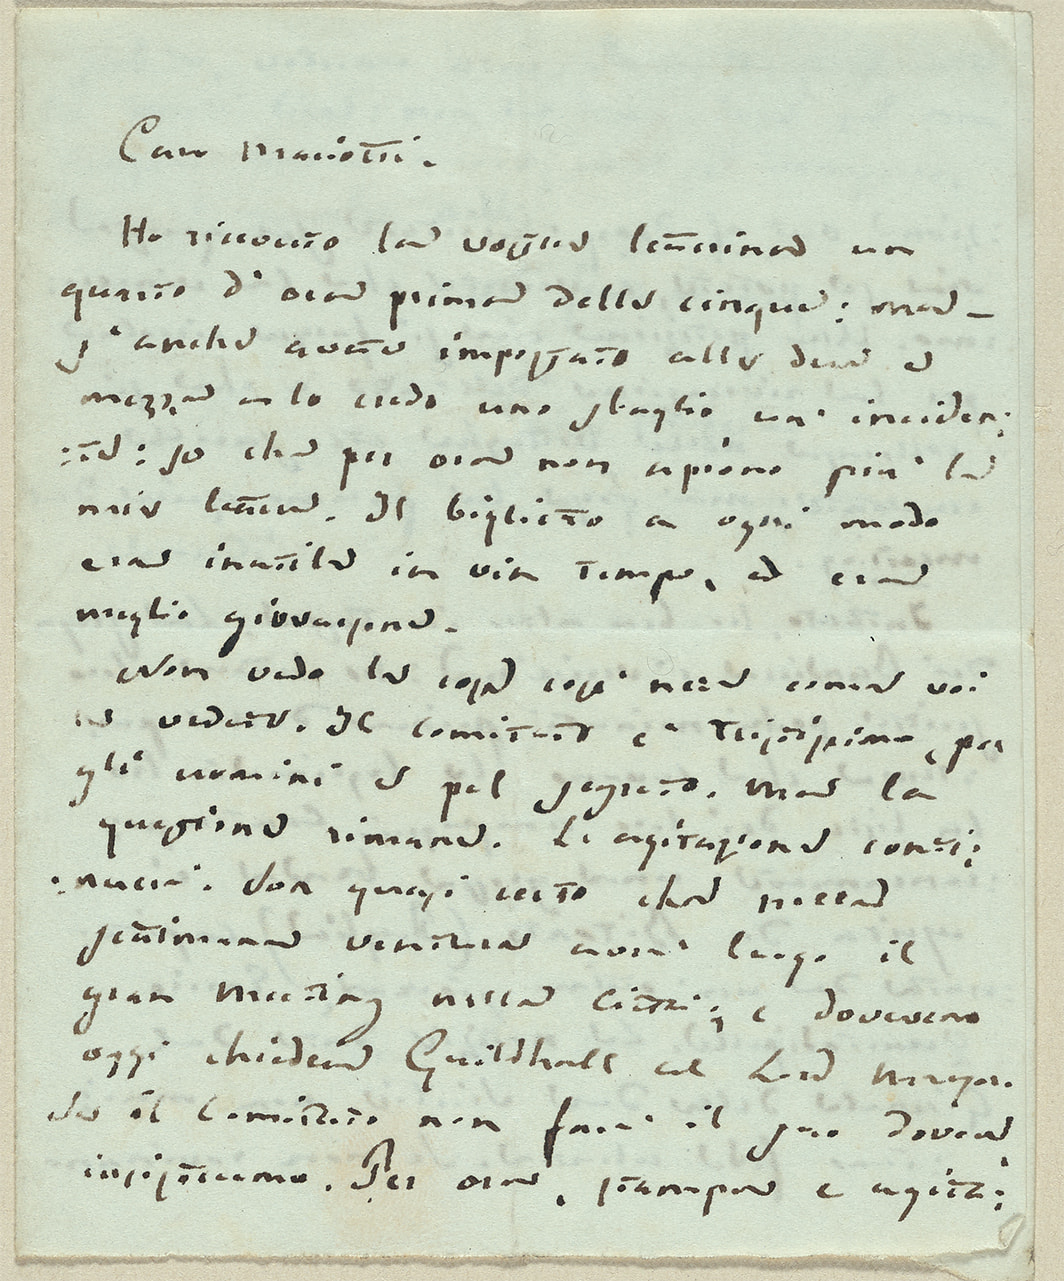 Caro Mariotti.
Ho ricevuto la vostra letterina un
quarto d'ora prima delle cinque: ma
s'anche avete impostato alle due e
mezza lo credo uno sbaglio un' inciden:
:te: so che per ora non aprono più le
mie lettere. Il biglietto a ogni modo
era inutile in vin tempo, ed era
meglio giovarsene.
Non vedo le cose così nere come voi
le vedete. Il Comitato è tristissimo, per
gli uomini e pel segreto. Ma la
questione rimane. L'agitazione conti:
:nuerà. Son quasi certo che nella
settimana ventura avrà luogo il
gran Meeting nella Città; e dovevano
oggi chiedere Guildhall al Lord Mayor.
Se il Comitato non farà il suo dovere,
insisteremo. Per ora, stampa e agita: